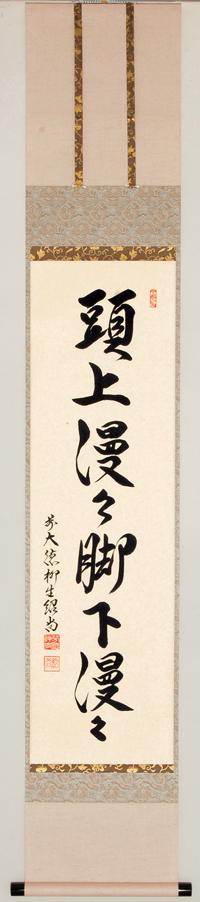 頭上漫々脚下漫々
前大徳柳生紹尚